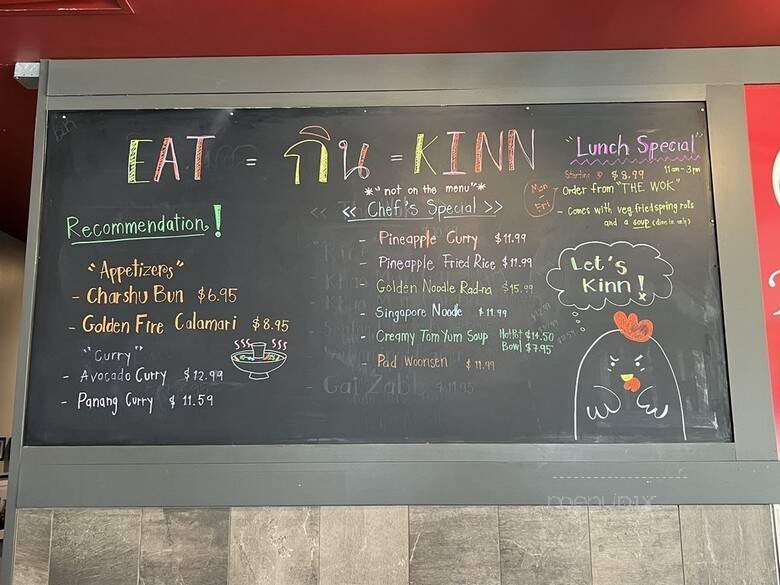 EAT = กิน = KINN
Recommendation!
"Appetizers"
- Charshu Bun $6.95
- Golden Fire Calamari $8.95
"Curry"
- Avocado Curry $12.99
- Panang Curry $11.59
*"not on the menu"*
<< Chef's Special >>
- Pineapple Curry $11.99
- Pineapple Fried Rice $11.99
- Golden Noodle Rad-na $15.99
- Singapore Noodle $11.99
- Creamy Tom Yum Soup Hot Pot $14.50
Bowl $7.95
- Pad Woonsen $11.99
Gai Zabb $11.95
"Lunch Special"
Starting @ $8.99 11am-3pm
Mon
Fri
- Order from "THE WOK"
- comes with veg. fried spring rolls
and a soup (dine in only)
Let's
Kinn!
menupix